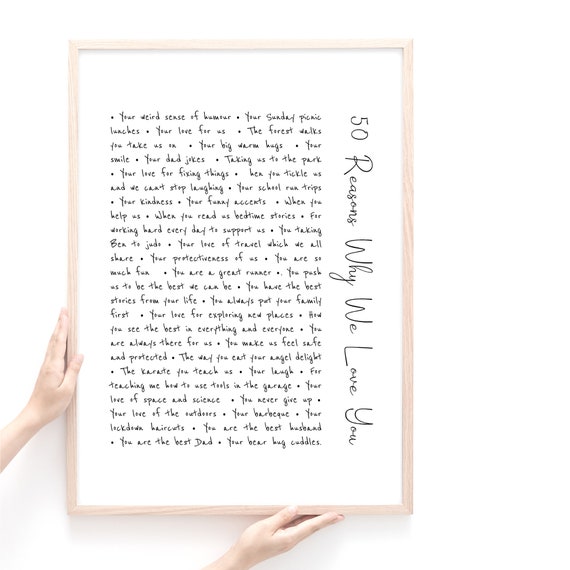 • Your weird sense of humour • Your Sunday picnic
lunches • Your love for us • The forest walks
you take us on • Your big warm hugs • Your
smile • Your dad jokes • Taking us to the park
• Your love for fixing things • hen you tickle us
and we can't stop laughing • Your school run trips
• Your kindness • Your funny accents • When you
help us • When you read us bedtime stories • For
working hard every day to support us • You taking
Ben to judo • Your love of travel which we all
share • Your protectiveness of us • You are so
much fun • You are a great runner •. You push
us to be the best we can be • You have the best
stories from your life • You always put your family
first • Your love for exploring new places • How
you see the best in everything and everyone • You
are always there for us • You make us feel safe
and protected • The way you eat your angel delight
• The karate you teach us • Your laugh • For
teaching me how to use tools in the garage • Your
love of space and science • You never give up •
Your love of the outdoors • Your barbeque • Your
lockdown haircuts • You are the best husband
• You are the best Dad • Your bear hug cuddles.
50 Reasons Why We Love You